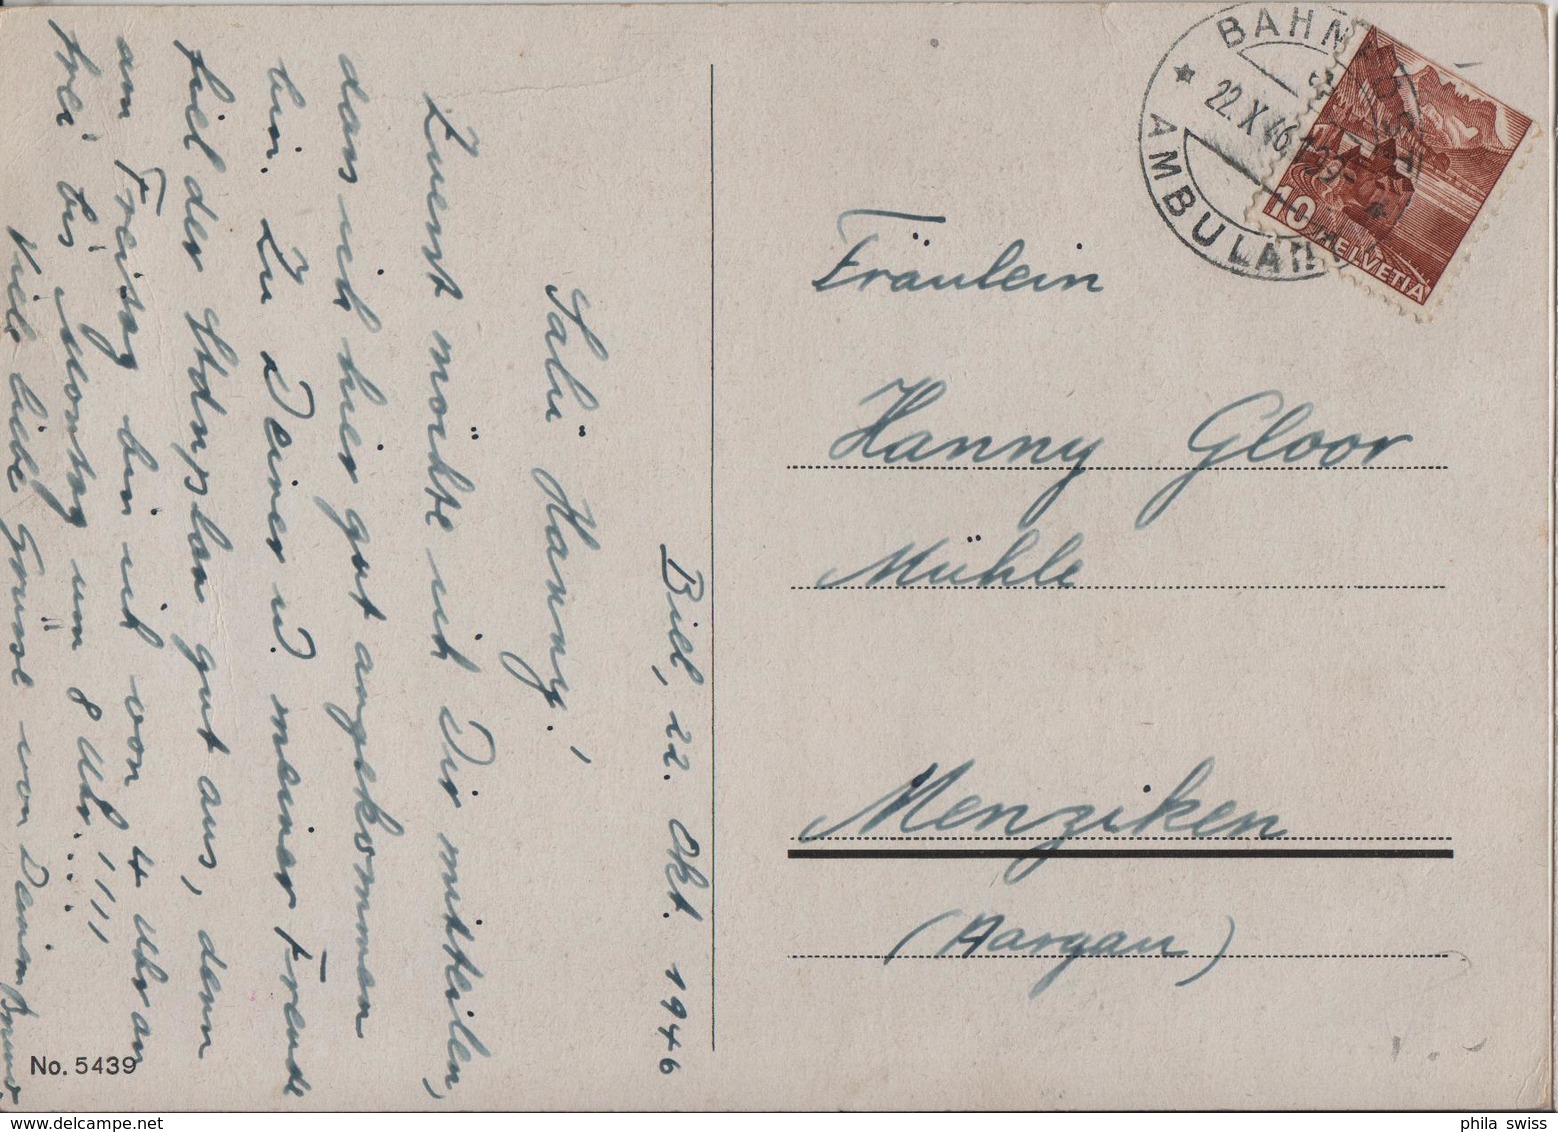 Biel, 22. Okt. 1946
Salü Hanny!
Zuerst möchte ich Dir mitteilen,
dass ich hier gut angekommen
bin. Zu Deiner u. meiner Freude
fiel der Stdnplan gut aus, denn
am Freitag bin ich von 4 Uhr an
frei bis Montag um 8 Uhr...!!!!
Viele liebe Grüsse von Deinem Bruno.
No. 5439
BAHNPOST
AMBULANT
22.X.46
10
HELVETIA
Fräulein
Hanny Gloor
Mühle
Menziken
(Aargau)
phila swiss